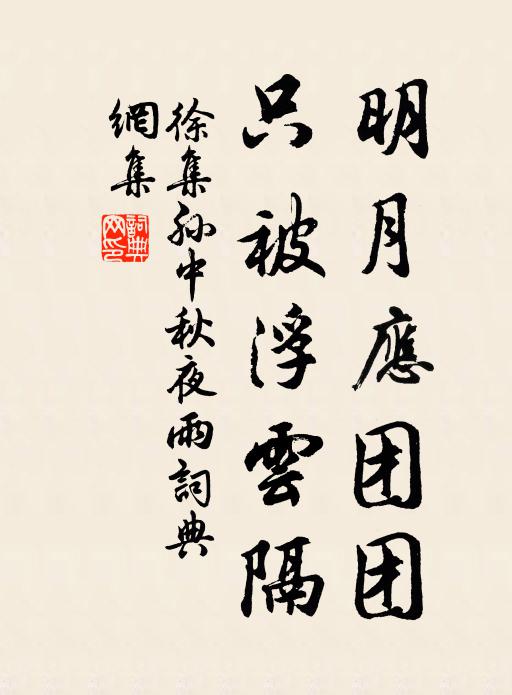 明月應团团
只被浮雲隔
徐集孙中秋夜雨詞典
網集
詞典
网印